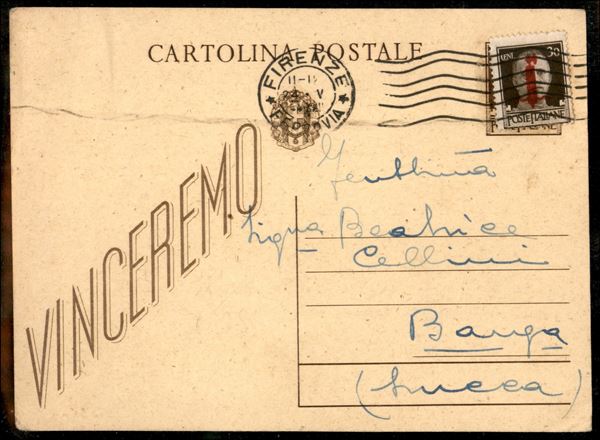 CARTOLINA POSTALE
FIRENZE
FERROVIA
CENT 30
POSTE ITALIANE
VINCEREMO
Gentilma
Sigña Beatrice
Cellini
Barga
(Lucca)